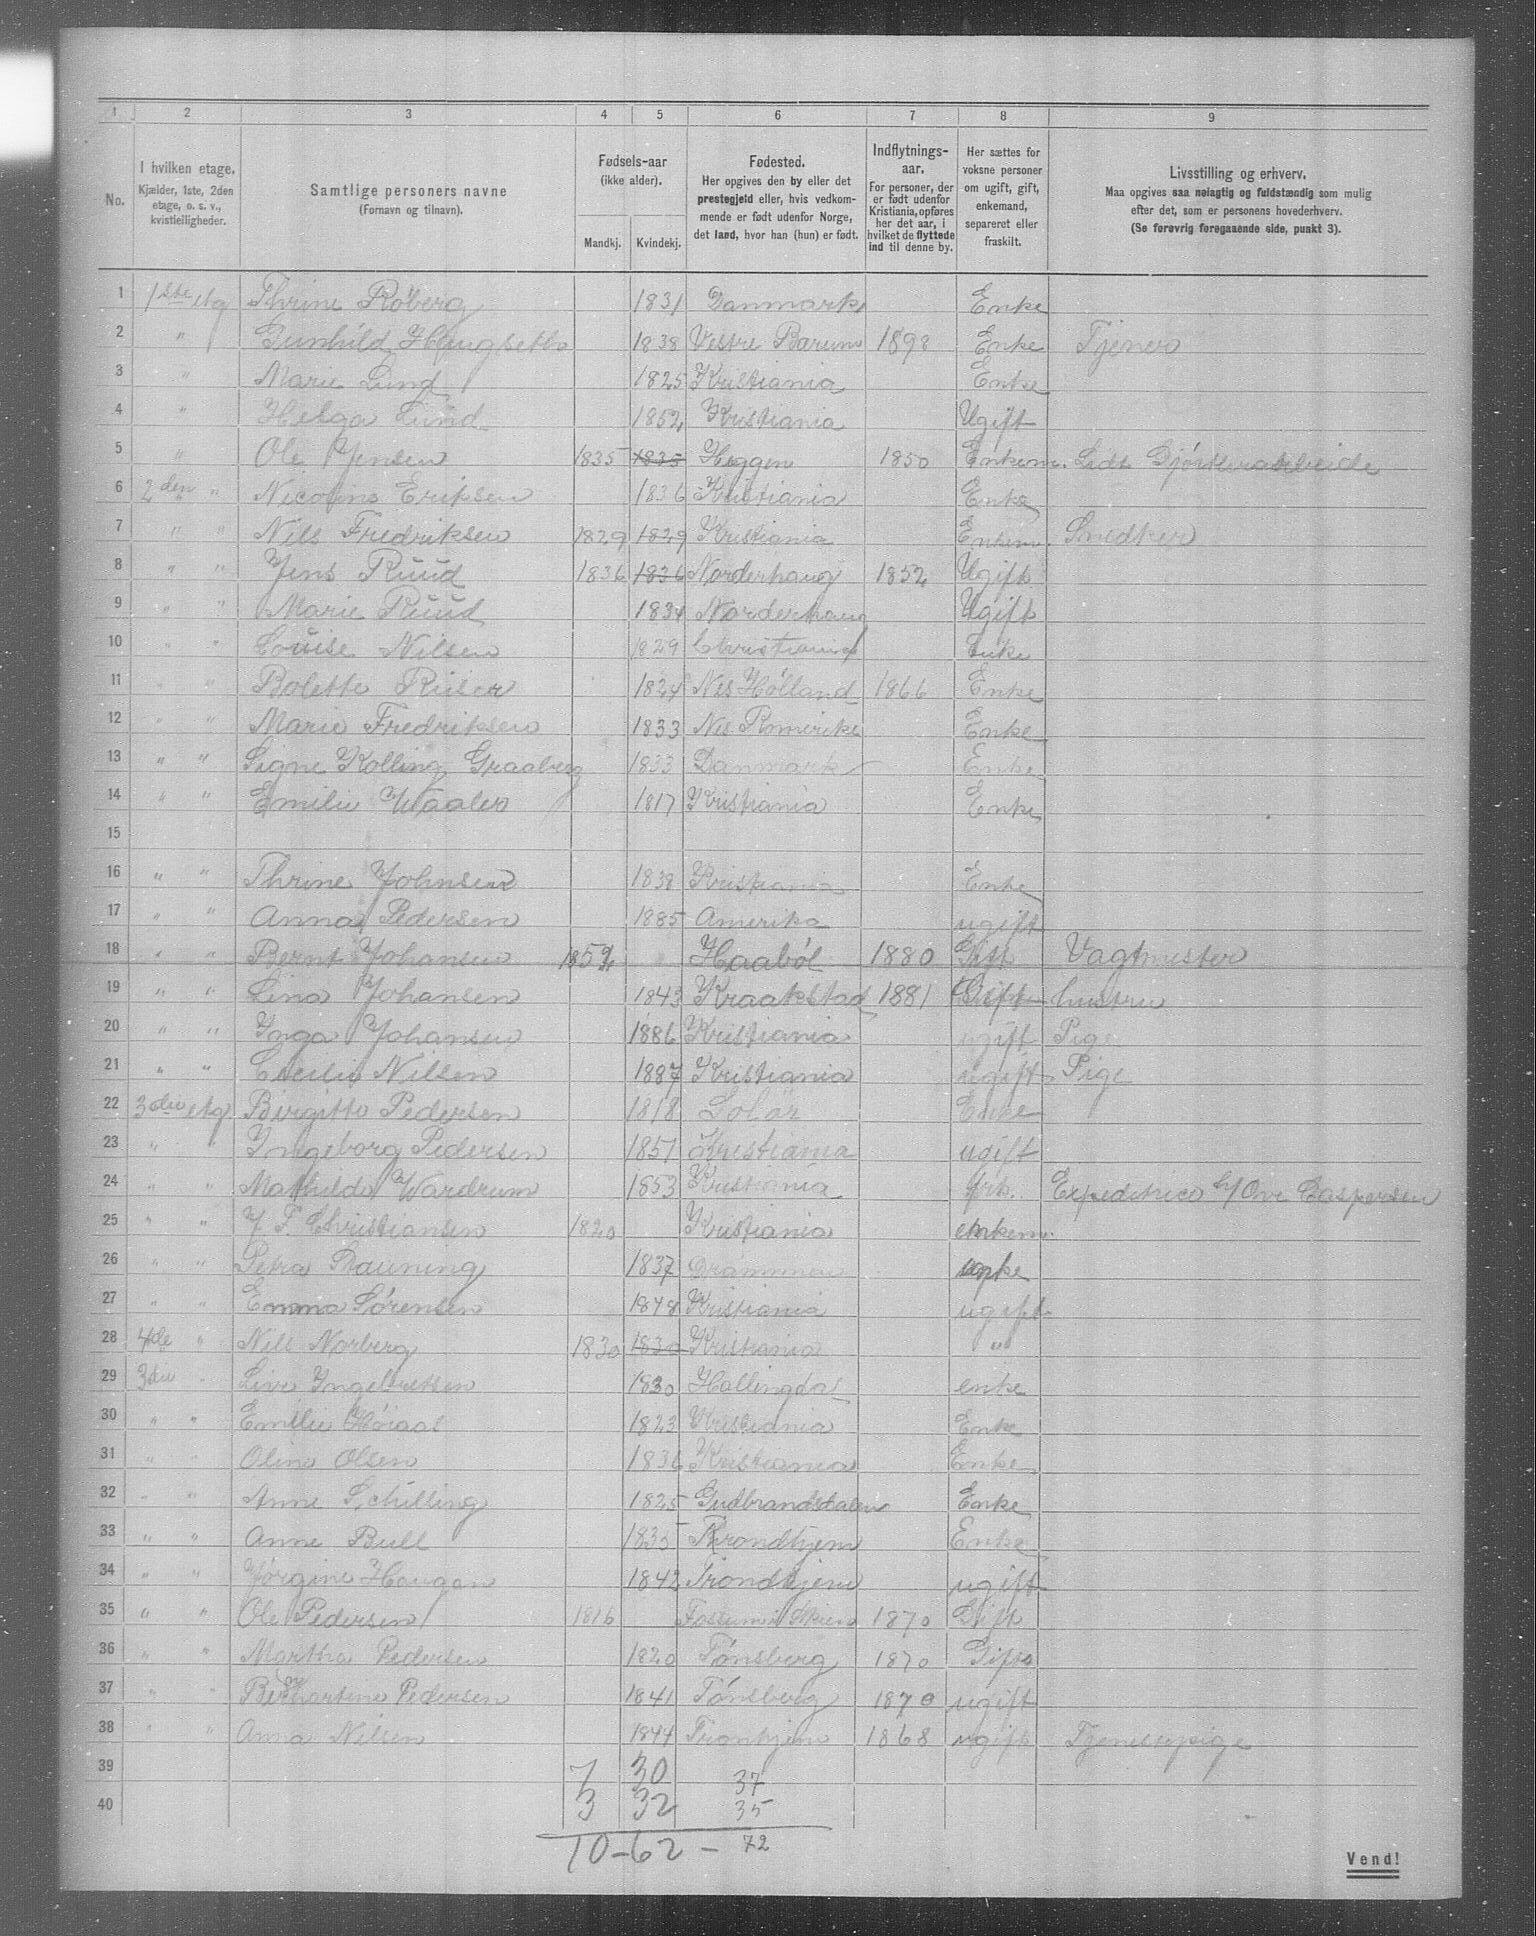 1 2 3 4 5 6 7 8 9
No. I hvilken etage. Kjælder, 1ste, 2den etage, o. s. v., kvistleiligheder. Samtlige personers navne (Fornavn og tilnavn). Fødsels-aar (ikke alder). Mandkj. Kvindekj. Fødested. Her opgives den by eller det prestegjeld eller, hvis vedkommende er født udenfor Norge, det land, hvor han (hun) er født. Indflytnings-aar. For personer, der er født udenfor Kristiania, opføres her det aar, i hvilket de flyttede ind til denne by. Her sættes for voksne personer om ugift, gift, enkemand, separeret eller fraskilt. Livsstilling og erhverv. Maa opgives saa nøiagtig og fuldstændig som mulig efter det, som er personens hovederhverv. (Se forøvrig foregaaende side, punkt 3).
1 1ste etg Thrine Röberg 1831 Danmark Enke
2 " Gunhild Haugseth 1838 Vestre Barum 1898 Enke Tjener
3 " Marie Lund 1825 Kristiania Enke
4 " Helga Lund 1852 Kristiania Ugift
5 " Ole Jensen 1835 1835 Heggen 1850 Enkem. Lidt
6 2den " Nicoline Eriksen 1836 Kristiania Enke
7 " " Nils Fredriksen 1829 1829 Kristiania Enkem. Snedker
8 " " Jens Ruud 1836 1836 Norderhaug 1852 Ugift
9 " " Marie Ruud 1834 Norderhaug Ugift
10 " " Louise Nilsen 1829 Christiania Enke
11 " " Bolette Riiser 1824 Nes Hölland 1866 Enke
12 " " Marie Fredriksen 1833 Nes Romerike Enke
13 " " Signe Kolling Graaberg 1833 Danmark Enke
14 " " Emilie Waaler 1817 Kristiania Enke
15
16 " " Thrine Johnsen 1838 Kristiania Enke
17 " " Anna Pedersen 1885 Amerika ugift
18 " " Bernt Johansen 1852 Haaböl 1880 Gift Vagtmester
19 " " Lina Johansen 1843 Kraakstad 1881 Gift hustru
20 " " Inga Johansen 1886 Kristiania ugift Pige
21 " " Cecilie Nilsen 1887 Kristiania ugift Pige
22 3die etg Birgitte Pedersen 1818 Solör Enke
23 " " Ingeborg Pedersen 1851 Kristiania ugift
24 " " Mathilde Wardrum 1853 Kristiania frk. Expeditrice h/ Ove Caspersen
25 " " J F Christiansen 1820 Kristiania enkem.
26 " " Petra Bruning 1837 Drammen enke
27 " " Emma Sørensen 1848 Kristiania ugift
28 4de " Nils Norberg 1830 1830 Kristiania "
29 3die " Live Ingebretsen 1830 Hallingdal enke
30 " " Emilie 1823 Kristiania Enke
31 " " Oline Olsen 1836 Kristiania Enke
32 " " Anne Schilling 1825 Gudbrandsdalen Enke
33 " " Anne Bull 1835 Throndhjem Enke
34 " " Jørgine Haugan 1842 Trondhjem ugift
35 " " Ole Pedersen 1816 Fossum Skien 1870 Gift
36 " " Martha Pedersen 1820 Tönsberg 1870 Gift
37 " " Berthartine Pedersen 1841 Tönsberg 1870 ugift
38 " " Anna Nilsen 1844 Tronhjem 1868 ugift Tjenestepige
39 7 30 37
40 3 32 35
10-62-72
Vend!